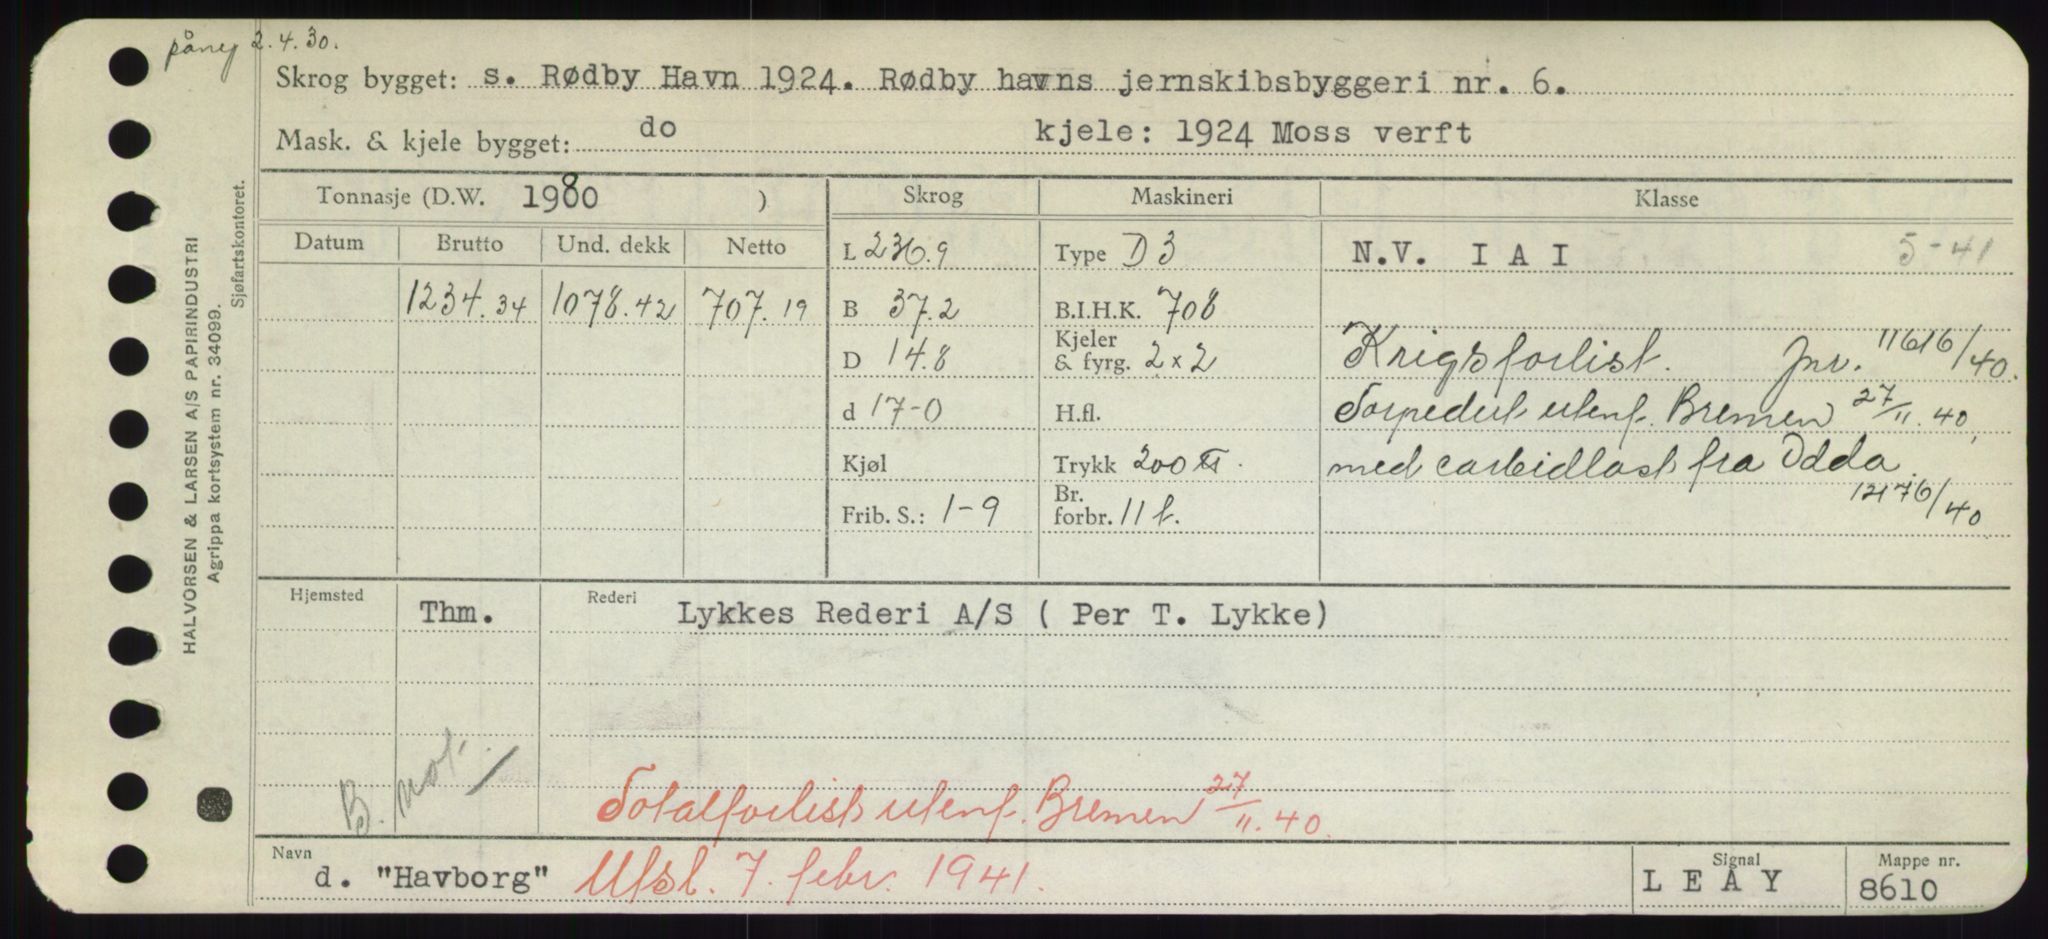 påny 2.4.30.
Skrog bygget: s. Rødby Havn 1924. Rødby havns jernskibsbyggeri nr. 6.
Mask. & kjele bygget: do kjele: 1924 Moss verft
Tonnasje (D.W. 1980 ) Skrog Maskineri Klasse
Datum Brutto Und. dekk Netto L 236.9 Type D3 N.V. I A I 5-41
1234.34 1078.42 707.19 B 37.2 B.I.H.K. 708
D 14.8 Kjeler & fyrg. 2x2 Krigsforlist. Jnr. 11616/40.
d 17-0 H.fl. Torpedert utenf. Bremen 27/11.40,
Kjøl Trykk 200 med carbidlast fra Odda.
Frib. S.: 1-9 Br. forbr. 11 t. 12176/40
Hjemsted Thm. Rederi Lykkes Rederi A/S ( Per T. Lykke)
B. not.
Totalforlist utenf. Bremen 27/11.40.
Navn d. "Havborg" Utsl. 7. febr. 1941. Signal L E A Y Mappe nr. 8610
HALVORSEN & LARSEN A/S PAPIRINDUSTRI
Agrippa kortsystem nr. 34099.
Sjøfartskontoret.